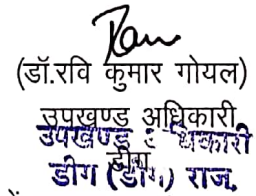 (डॉ.रवि कुमार गोयल)
उपखण्ड अधिकारी
डीग
उपखण्ड अधिकारी
डीग (डीग) राज.